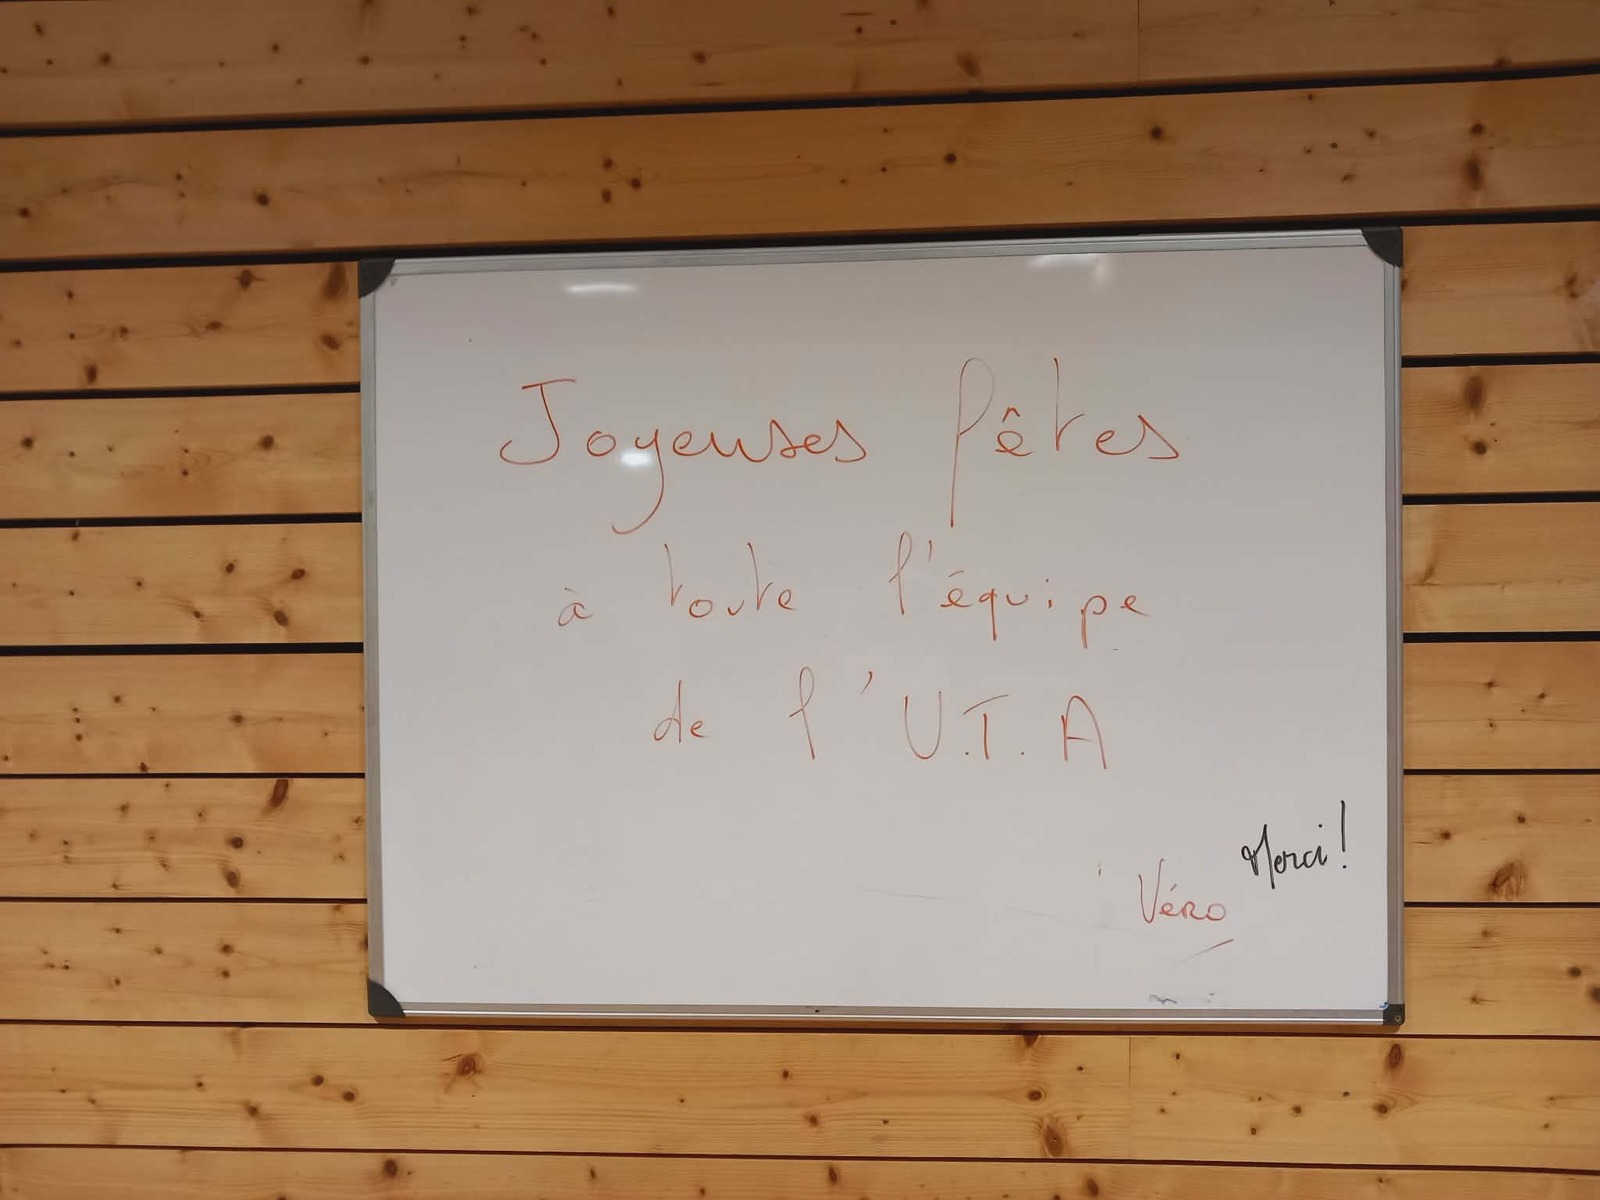 Joyeuses fêtes
à toute l'équipe
de l'U.T.A
Merci !
Véro